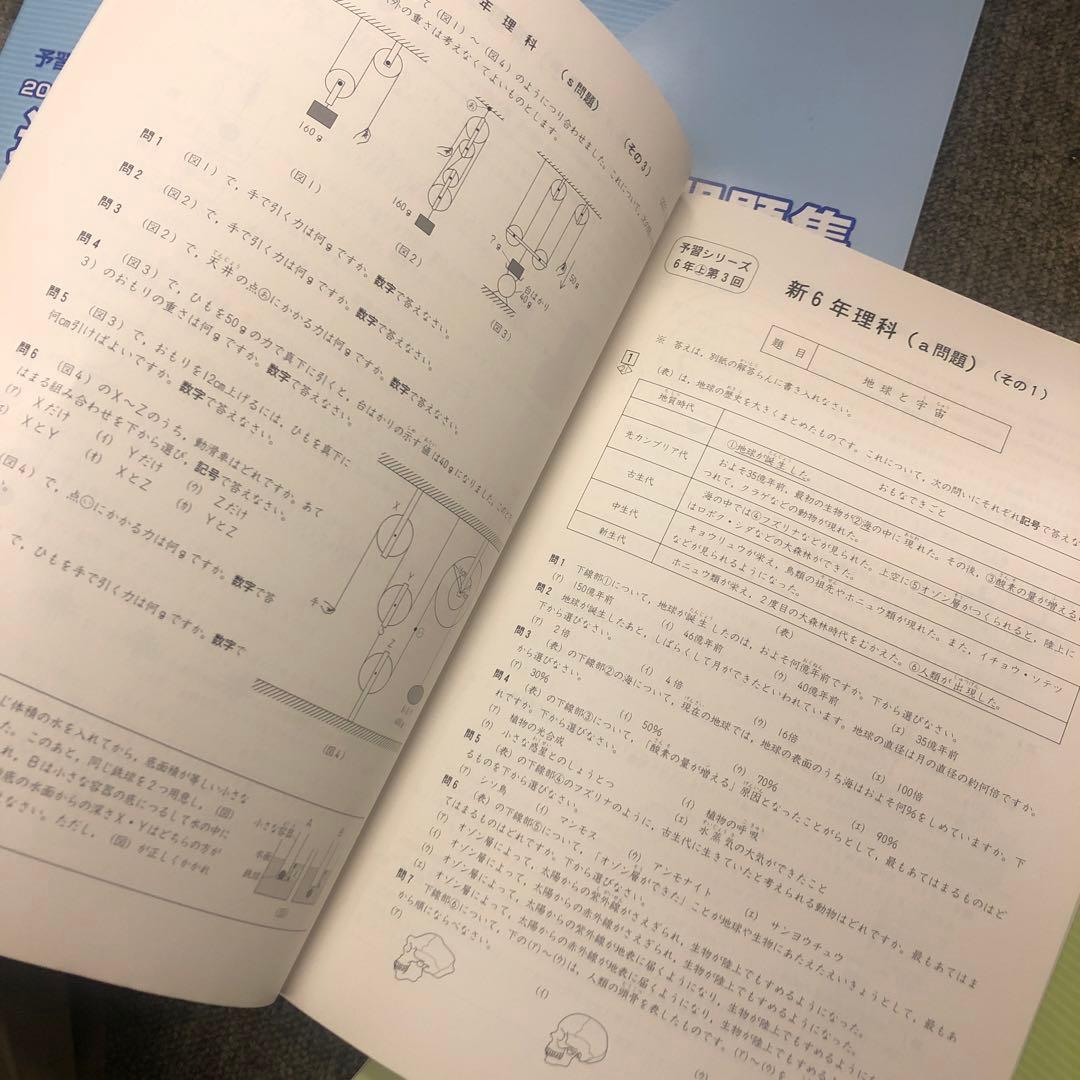 予習
20
題集
年 理 科 （s問題） （その3）
（図1）～（図4）のようにつり合わせました。これについて、
外の重さは考えなくてよいものとします。
160g
（図1）
あ
160g
（図2）
?g
台はかり
40g
50g
（図3）
問1 （図1）で，手で引く力は何gですか。数字で答えなさい。
問2 （図2）で，手で引く力は何gですか。数字で答えなさい。
問3 （図2）で，天井の点あにかかる力は何gですか。数字で答えなさい。
問4 （図3）で，ひもを50gの力で真下に引くと，台はかりの示す値は40gになりました。
3）のおもりの重さは何gですか。数字で答えなさい。
問5 （図3）で，おもりを12cm上げるには，ひもを真下に
何cm引けばよいですか。数字で答えなさい。
問6 （図4）のX～Zのうち，動滑車はどれですか。あて
はまる組み合わせを下から選び，記号で答えなさい。
(ア) Xだけ (イ) Yだけ (ウ) Zだけ
XとY (オ) XとZ (カ) YとZ
図4）で，点いにかかる力は何gですか。数字で答
で，ひもを手で引く力は何gですか。数字で
X
Y
Z
手
（図4）
じ体積の水を入れてから，底面積が等しい小さな
た。このあと，同じ鉄球を2つ用意し，（図）
れ，Bは小さな容器の底につるして水の中に
底の水面からの深さX・Yはどちらの方が
なさい。ただし，（図）が正しくかかれ
小さな容器
A
水面
鉄球
（図）
予習シリーズ
6年上第3回
新6年理科（a問題） （その1）
題 目 地 球 と 宇 宙
※ 答えは，別紙の解答らんに書き入れなさい。
1
（表）は，地球の歴史を大きくまとめたものです。これについて，次の問いにそれぞれ記号で答えな
地質時代 おもなできごと
先カンブリア代 ①地球が誕生した。
およそ35億年前，最初の生物が②海の中に現れた。その後，③酸素の量が増える
つれて，クラゲなどの動物が現れた。
古生代 海の中では④フズリナなどが見られた。上空に⑤オゾン層がつくられると，陸上に
はロボク・シダなどの大森林ができた。
中生代 キョウリュウが栄え，鳥類の祖先やホニュウ類が現れた。また，イチョウ・ソテツ
などが見られるようになった。
新生代 ホニュウ類が栄え，2度目の大森林時代をむかえた。⑥人類が出現した。
（表）
問1 下線部①について，地球が誕生したのは，およそ何億年前ですか。下から選びなさい。
(ア) 150億年前 (イ) 46億年前 (ウ) 40億年前 (エ) 35億年前
問2 地球が誕生したあと，しばらくして月ができたといわれています。地球の直径は月の直径の約何倍ですか。
下から選びなさい。
(ア) 2倍 (イ) 4倍 (ウ) 16倍 (エ) 100倍
問3 （表）の下線部②の海について，現在の地球では，地球の表面のうち海はおよそ何%をしめていますか。下
から選びなさい。
(ア) 30% (イ) 50% (ウ) 70% (エ) 90%
問4 （表）の下線部③について，「酸素の量が増える」原因となったことがらとして，最もあてはまるものはど
れですか。下から選びなさい。
(ア) 植物の光合成 (イ) 植物の呼吸
(ウ) 小さな惑星とのしょうとつ (エ) 水蒸気の大気ができたこと
問5 （表）の下線部④のフズリナのように，古生代に生きていたと考えられる動物はどれですか。最もあてはま
るものを下から選びなさい。
(ア) シソ鳥 (イ) マンモス (ウ) アンモナイト (エ) サンヨウチュウ
問6 （表）の下線部⑤について，「オゾン層ができた」ことが地球や生物にあたえたえいきょうとして，最もあ
てはまるものはどれですか。下から選びなさい。
(ア) オゾン層によって，太陽からの紫外線がさえぎられ，生物が陸上でもすめるようになった。
(イ) オゾン層によって，太陽からの赤外線がさえぎられ，生物が陸上でもすめるようになった。
(ウ) オゾン層によって，太陽からの紫外線が地表に届くようになり，生物が陸上でもすめるようになった。
(エ) オゾン層によって，太陽からの赤外線が地表に届くようになり，生物が陸上でもすめるように
問7 下線部⑥について，下の(ア)～(ウ)は，人類の頭骨を表したものです。(ア)～(ウ)を
から順にならべなさい。
(ア)
(イ)
(ウ)